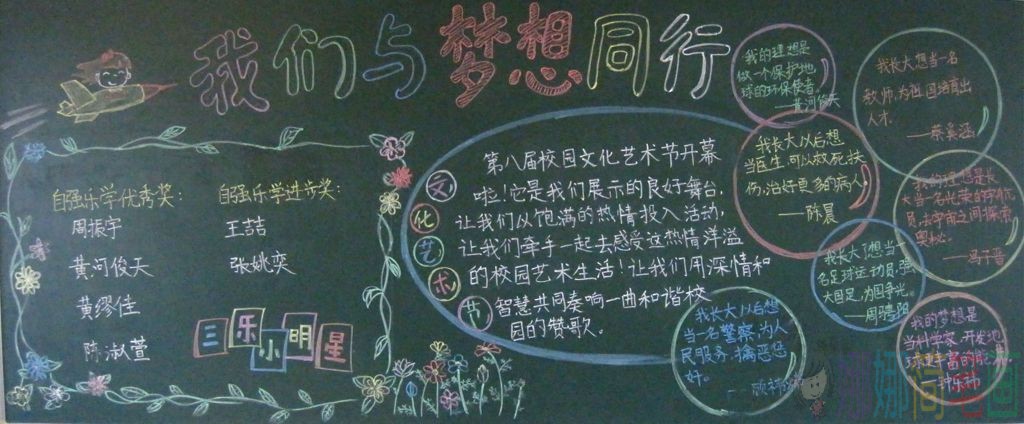 我们与梦想同行
自强乐学优秀奖：
周振宇
黄河俊天
黄缪佳
陈淑萱
自强乐学进步奖：
王喆
张姚奕
三乐小明星
文化艺术节
第八届校园文化艺术节开幕
啦！它是我们展示的良好舞台，
让我们以饱满的热情投入活动，
让我们牵手一起去感受这热情洋溢
的校园艺术生活！让我们用深情和
智慧共同奏响一曲和谐校
园的赞歌。
我的理想是
做一个保护地
球的环保使者。
——黄河俊天
我长大想当一名
教师，为祖国培育出
人才。
我长大以后想
当医生，可以救死扶
伤，治好更多的病人。
——陈晨
我的理想是长
大当一名光荣的宇航
员，去宇宙之间探索
奥秘。
——冯子晋
我长大了想当一
名足球运动员，强
大国足，为国争光。
我长大以后想
当一名警察，为人
民服务，擒恶惩
奸。
我的梦想是
当科学家，开发地